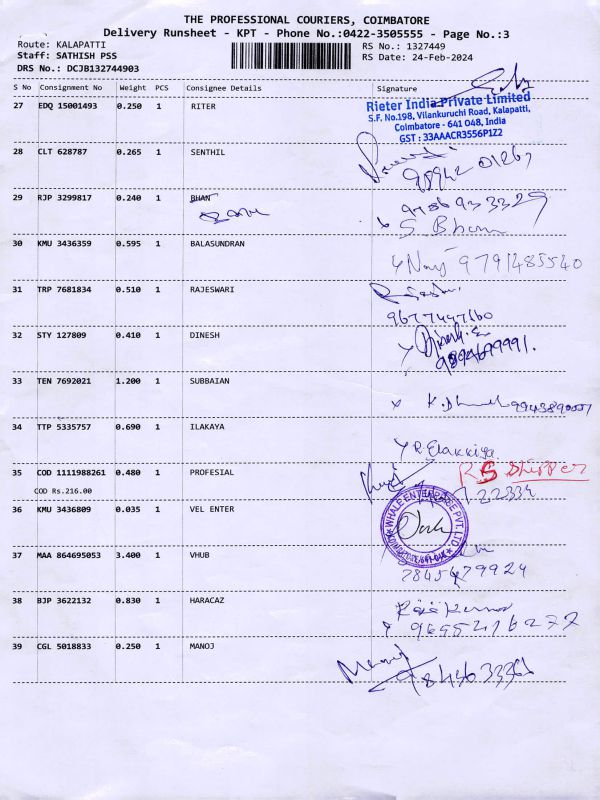 THE PROFESSIONAL COURIERS, COIMBATORE
Delivery Runsheet - KPT - Phone No.:0422-3505555 - Page No.:3
Route: KALAPATTI
RS No.: 1327449
Staff: SATHISH PSS
RS Date: 24-Feb-2024
DRS No.: DCJB132744903
S No Consignment No Weight PCS Consignee Details Signature
27 EDQ 15001493 0.250 1 RITER
Rieter India Private Limited
S.F. No.198, Vilankuruchi Road, Kalapatti,
Coimbatore - 641 048, India
GST : 33AAACR3556P1Z2
28 CLT 628787 0.265 1 SENTHIL
98942 01267
29 RJP 3299817 0.240 1 BHAN
9786933329
S. Bhanu
30 KMU 3436359 0.595 1 BALASUNDRAN
9791485540
31 TRP 7681834 0.510 1 RAJESWARI
9677447160
32 STY 127809 0.410 1 DINESH
Dinesh
33 TEN 7692021 1.200 1 SUBBAIAN
34 TTP 5335757 0.690 1 ILAKAYA
R. Elakkiya
35 COD 1111988261 0.480 1 PROFESIAL
COD Rs.216.00
RS Shipper
22334
36 KMU 3436809 0.035 1 VEL ENTER
WHALE ENTERPRISE PVT. LTD.
37 MAA 864695053 3.400 1 VHUB
38 BJP 3622132 0.830 1 HARACAZ
Raj Kumar
39 CGL 5018833 0.250 1 MANOJ
Manoj